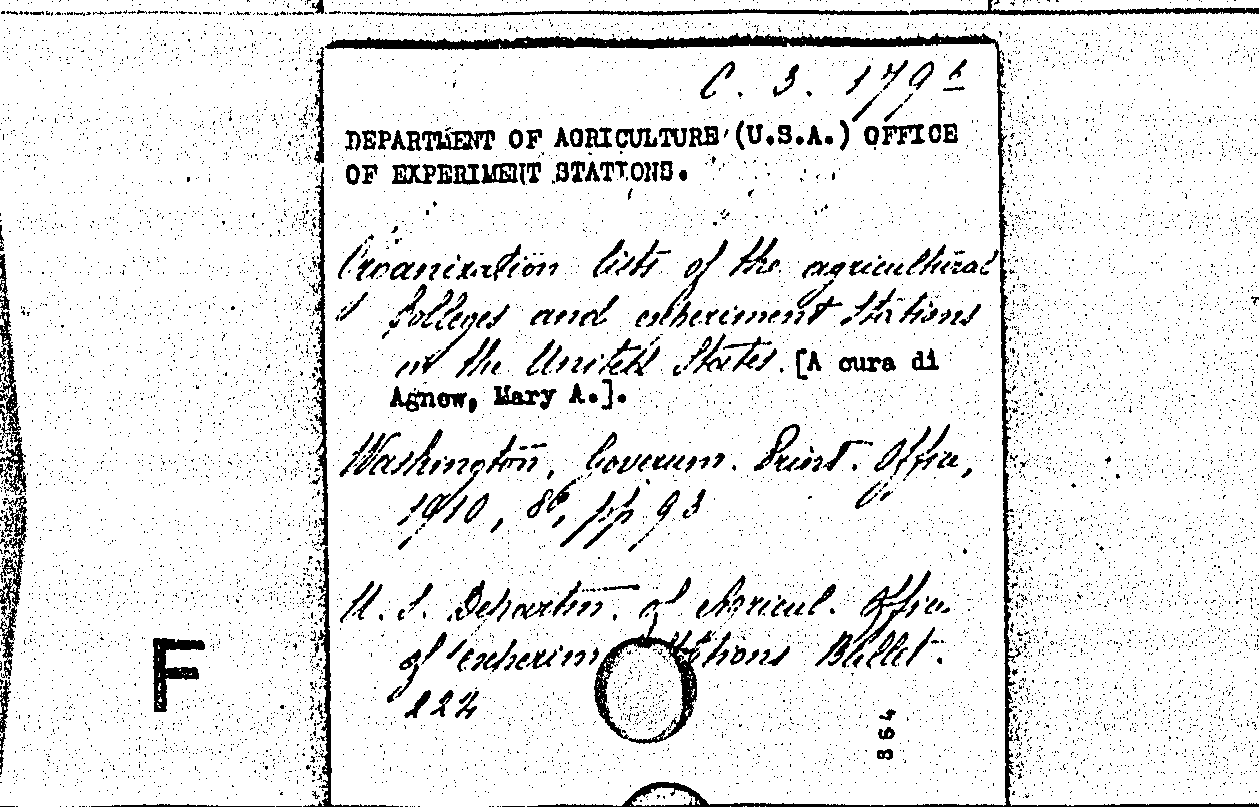 C. 3. 179
DEPARTMENT OF AGRICULTURE (U.S.A.) OFFICE
OF EXPERIMENT STATIONS.
Organization lists of the agricultural
Colleges and experiment stations
in the United States. [A cura di
Agnew, Mary A.].
Washington, Governm. Print. Office,
1910, 8°, pp 93
U. S. Departm. of Agricul. Office
of experim. Stations Bullet.
224
F
864